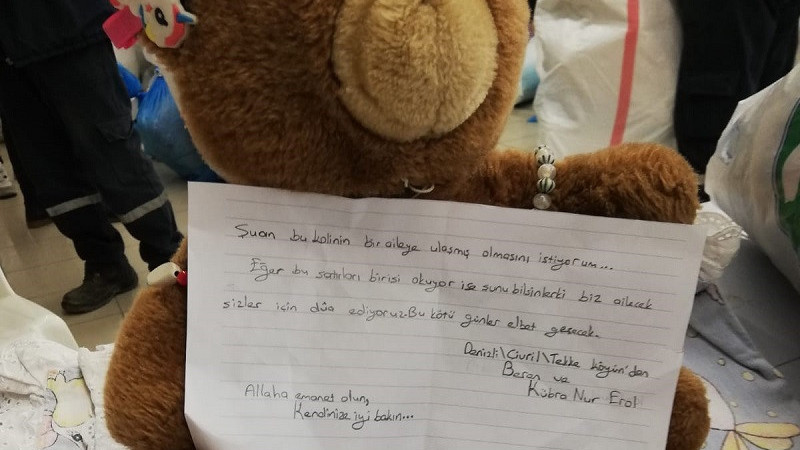 Şuan bu kolinin bir aileye ulaşmış olmasını istiyorum...
Eğer bu satırları birisi okuyor ise şunu bilsinlerki biz ailecek
sizler için dûa ediyoruz. Bu kötü günler elbet geçecek.
Denizli\Çivril\Tekke köyün'den
Beren ve
Kübra Nur Erol
Allaha emanet olun,
Kendinize iyi bakın...